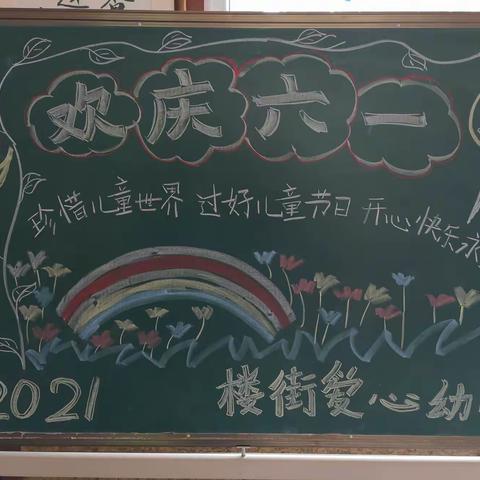 欢庆六一
珍惜儿童世界 过好儿童节日 开心快乐永
2021 楼街爱心幼